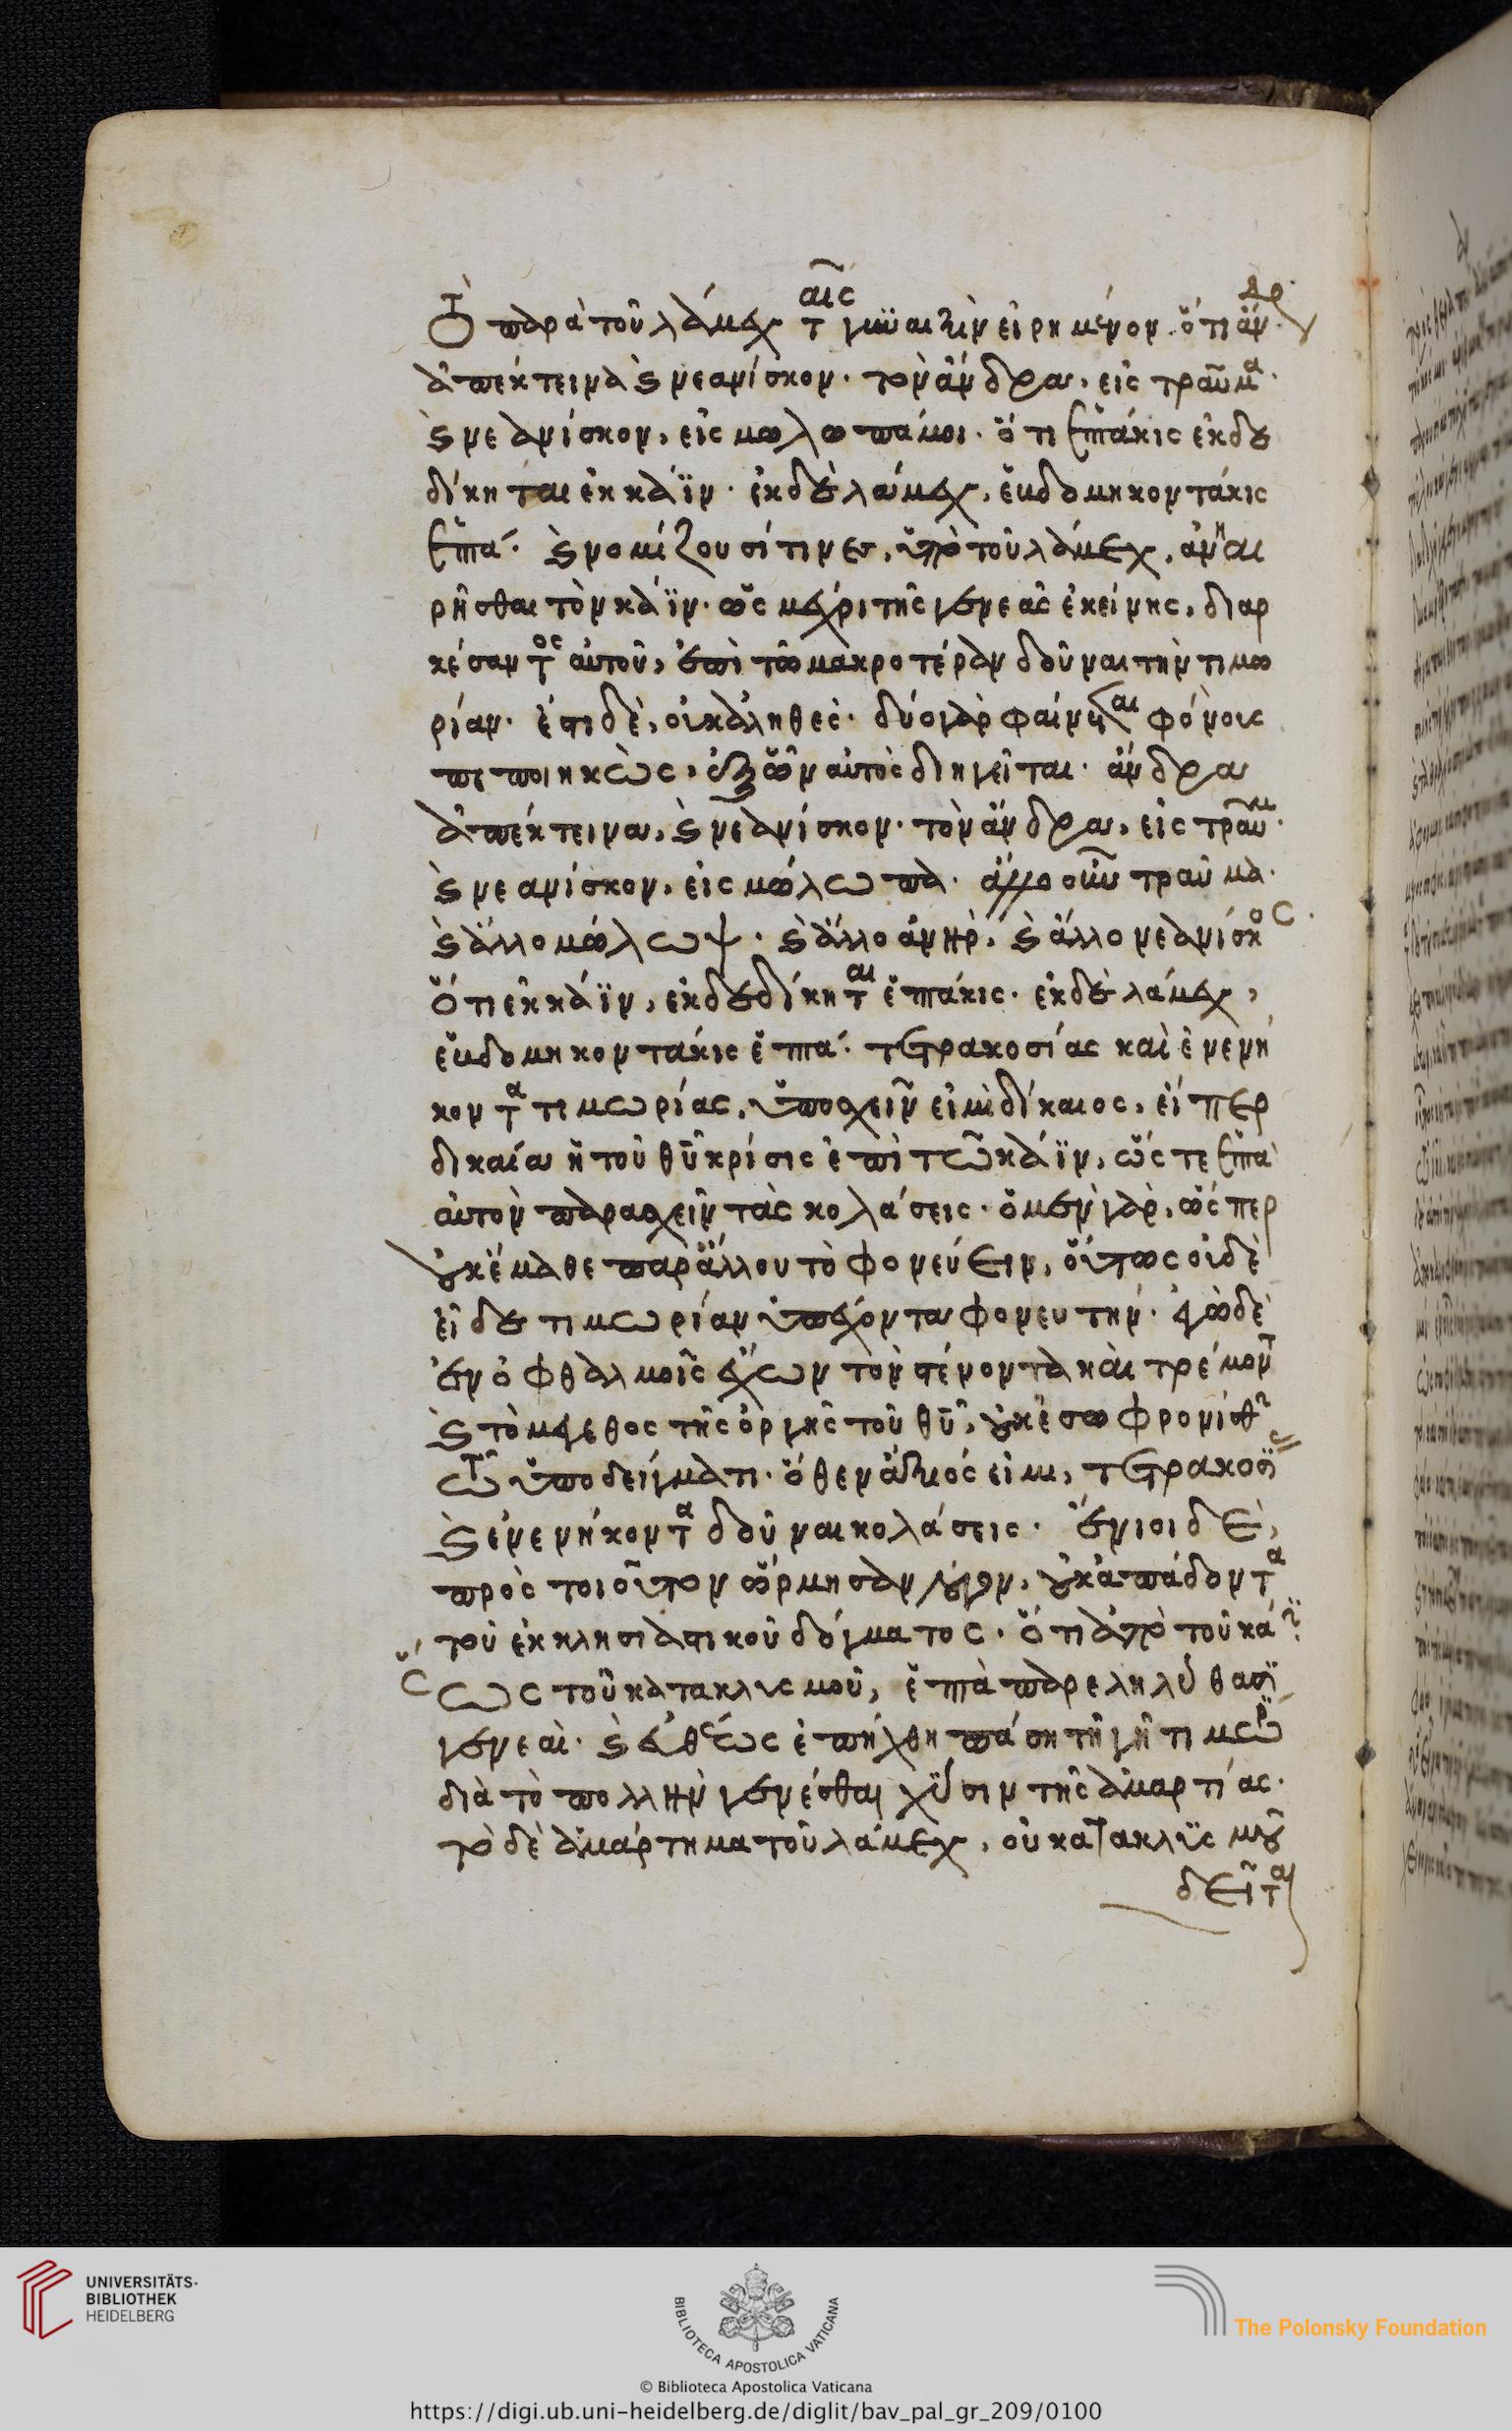 Τὸ παρὰ τοῦ λάμεχ ταῖς γυναιξὶν εἰρημένον. ὅτι ἄνδρ
ἀπέκτεινα ϗ νεανίσκον· τὸν ἄνδρα, εἰς τραῦμα·
ϗ νεανίσκον, εἰς μώλωπα μοι· ὅτι ἑπτάκις ἐκδε
δίκηται ἐκ κάϊν· ἐκ δὲ λάμεχ, ἑβδομηκοντάκις
ἑπτά· ϗ νομίζουσί τινες, ὑπὸ τοῦ λάμεχ, ἀνηι
ρῆσθαι τὸν κάϊν· ὡς μέχρι τῆς γενεᾶς ἐκείνης, διαρ
κέσαντος αὐτοῦ, ἐπὶ τῶ μακροτέραν δοῦναι τὴν τιμω
ρίαν· ἔστι δὲ, οὐκ ἀληθές· δύο γὰρ φαίνεται φόνους
πεποιηκὼς, ἐξ ὧν αὐτὸς διηγεῖται· ἄνδρα
ἀπέκτεινα, ϗ νεανίσκον· τὸν ἄνδρα, εἰς τραῦμ·
ϗ νεανίσκον, εἰς μώλωπα· ἄλλο οὖν τραῦμα·
ϗ ἄλλο μώλωψ· ϗ ἄλλο ἀνὴρ, ϗ ἄλλο νεανίσκος·
ὅτι ἐκ κάϊν, ἐκδεδίκηται ἑπτάκις· ἐκ δὲ λάμεχ,
ἑβδομηκοντάκις ἑπτά· τετρακοσίας καὶ ἐνενή
κοντα τιμωρίας, ὑποσχεῖν εἰμὶ δίκαιος, εἴπερ
δικαία ἡ τοῦ θῦ κρίσις ἐπὶ τῶ κάϊν, ὥστε ἑπτὰ
αὐτὸν παρασχεῖν τὰς κολάσεις· ὁ μὲν γὰρ, ὥσπερ
οὐκ ἔμαθε παρ ἄλλου τὸ φονεύειν, οὕτως οὐδὲ
εἶδε τιμωρίαν ὑπέχοντα φονευτήν· ἐγὼ δὲ
ἐν ὀφθαλμοῖς ἔχων τὸν στένοντα καὶ τρέμοντ
ϗ τὸ μέγεθος τῆς ὀργῆς τοῦ θῦ, οὐκ ἐσωφρονίσθην
τῶ ὑποδείγματι· ὅθεν ἄξιός εἰμι, τετρακοσί
ϗ ἐνενήκοντα δοῦναι κολάσεις· ἔνιοι δὲ,
πρὸς τοιοῦτον ὥρμησαν λόγον, οὐκ ἀπάδοντα
τοῦ ἐκκλησιαστικοῦ δόγματος· ὅτι ἀπὸ τοῦ κάϊν
ἕως τοῦ κατακλυσμοῦ, ἑπτὰ παρεληλύθασι
γενεαὶ· ϗ εὐθέως ἐπήχθη πάση τῆ γῆ τιμωρ
διὰ τὸ πολλὴν γενέσθαι χύσιν τῆς ἁμαρτίας·
τὸ δὲ ἁμάρτημα τοῦ λάμεχ, οὐ κατακλυσμοῦ
δεῖται
UNIVERSITÄTS-
BIBLIOTHEK
HEIDELBERG
BIBLIOTECA APOSTOLICA VATICANA
© Biblioteca Apostolica Vaticana
The Polonsky Foundation
https://digi.ub.uni-heidelberg.de/diglit/bav_pal_gr_209/0100